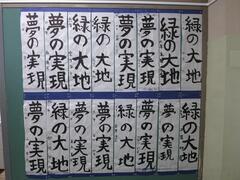 緑の大地
緑の大地
夢の実現
夢の実現
緑の大地
緑の大地
夢の実現
夢の実現
緑の大地
夢の実現
夢の実現
緑の大地
夢の実現
夢の実現
緑の大地
夢の実現